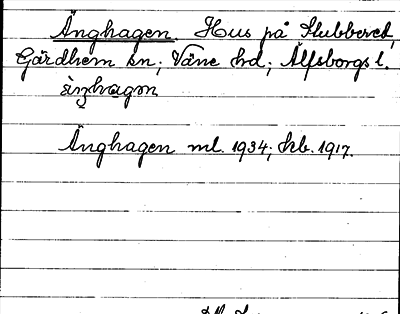 Änghagen. Hus på Stubberet,
Gärdhem sn; Väne hd; Älfsborgs l.
Änghagen ml. 1934; kb. 1917.